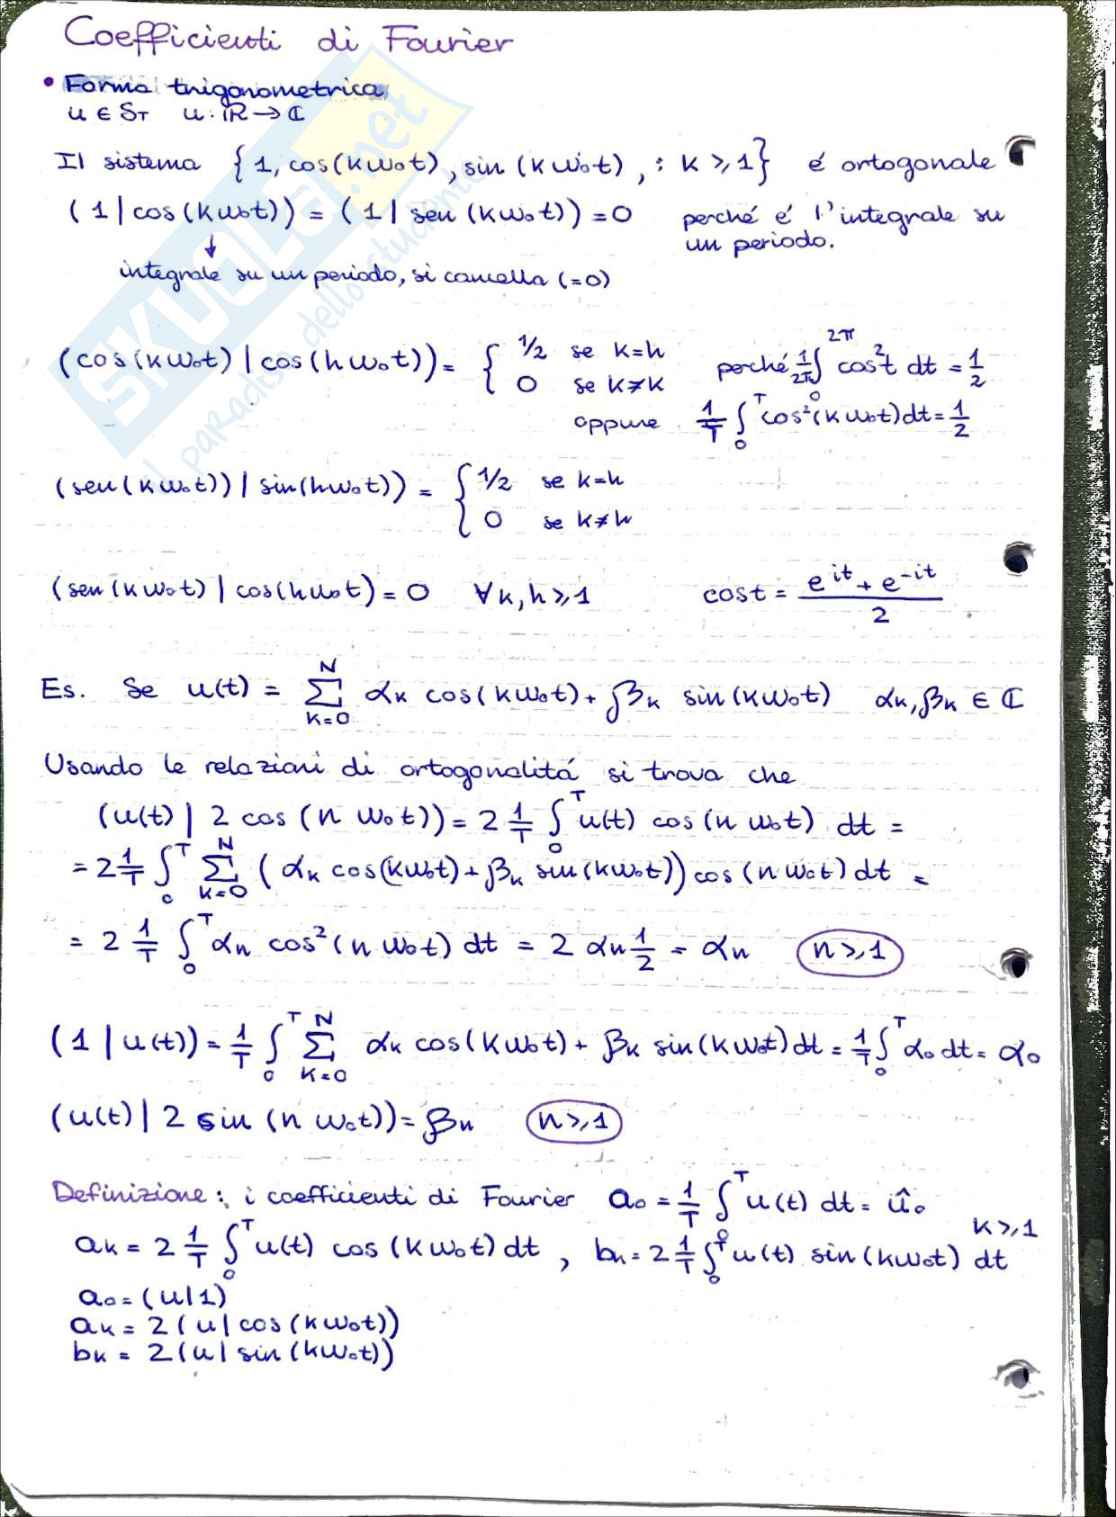 Coefficienti di Fourier
• Forma trigonometrica
u ∈ S_T   u: ℝ → ℂ
Il sistema {1, cos(kω₀t), sin(kω₀t), : k ≥ 1} é ortogonale
(1 | cos(kω₀t)) = (1 | sen(kω₀t)) = 0   perché e' l'integrale su
un periodo.
↓
integrale su un periodo, si cancella (=0)
(cos(kω₀t) | cos(hω₀t)) = { 1/2 se k=h   perché 1/2π ∫₀^2π cos²t dt = 1/2
0 se k≠k
oppure 1/T ∫₀^T cos²(kω₀t)dt = 1/2
(sen(kω₀t)) | sin(hω₀t)) = { 1/2 se k=h
0 se k≠h
(sen(kω₀t) | cos(hω₀t) = 0   ∀k,h ≥ 1   cos t = (e^it + e^-it)/2
Es. Se u(t) = Σ_{k=0}^N αk cos(kω₀t) + βk sin(kω₀t)   αk, βk ∈ ℂ
Usando le relazioni di ortogonalitá si trova che
(u(t) | 2 cos(nω₀t)) = 2 1/T ∫₀^T u(t) cos(nω₀t) dt =
= 2 1/T ∫₀^T Σ_{k=0}^N (αk cos(kω₀t) + βk sin(kω₀t)) cos(nω₀t) dt =
= 2 1/T ∫₀^T αn cos²(nω₀t) dt = 2 αn 1/2 = αn   n ≥ 1
(1 | u(t)) = 1/T ∫₀^T Σ_{k=0}^N αk cos(kω₀t) + βk sin(kω₀t) dt = 1/T ∫₀^T α₀ dt = α₀
(u(t) | 2 sin(nω₀t)) = βn   n ≥ 1
Definizione: i coefficienti di Fourier a₀ = 1/T ∫₀^T u(t) dt = û₀
k ≥ 1
ak = 2 1/T ∫₀^T u(t) cos(kω₀t) dt , bk = 2 1/T ∫₀^T u(t) sin(kω₀t) dt
a₀ = (u|1)
ak = 2(u | cos(kω₀t))
bk = 2(u | sin(kω₀t))
SKUOLA.net
il paradiso dello studente